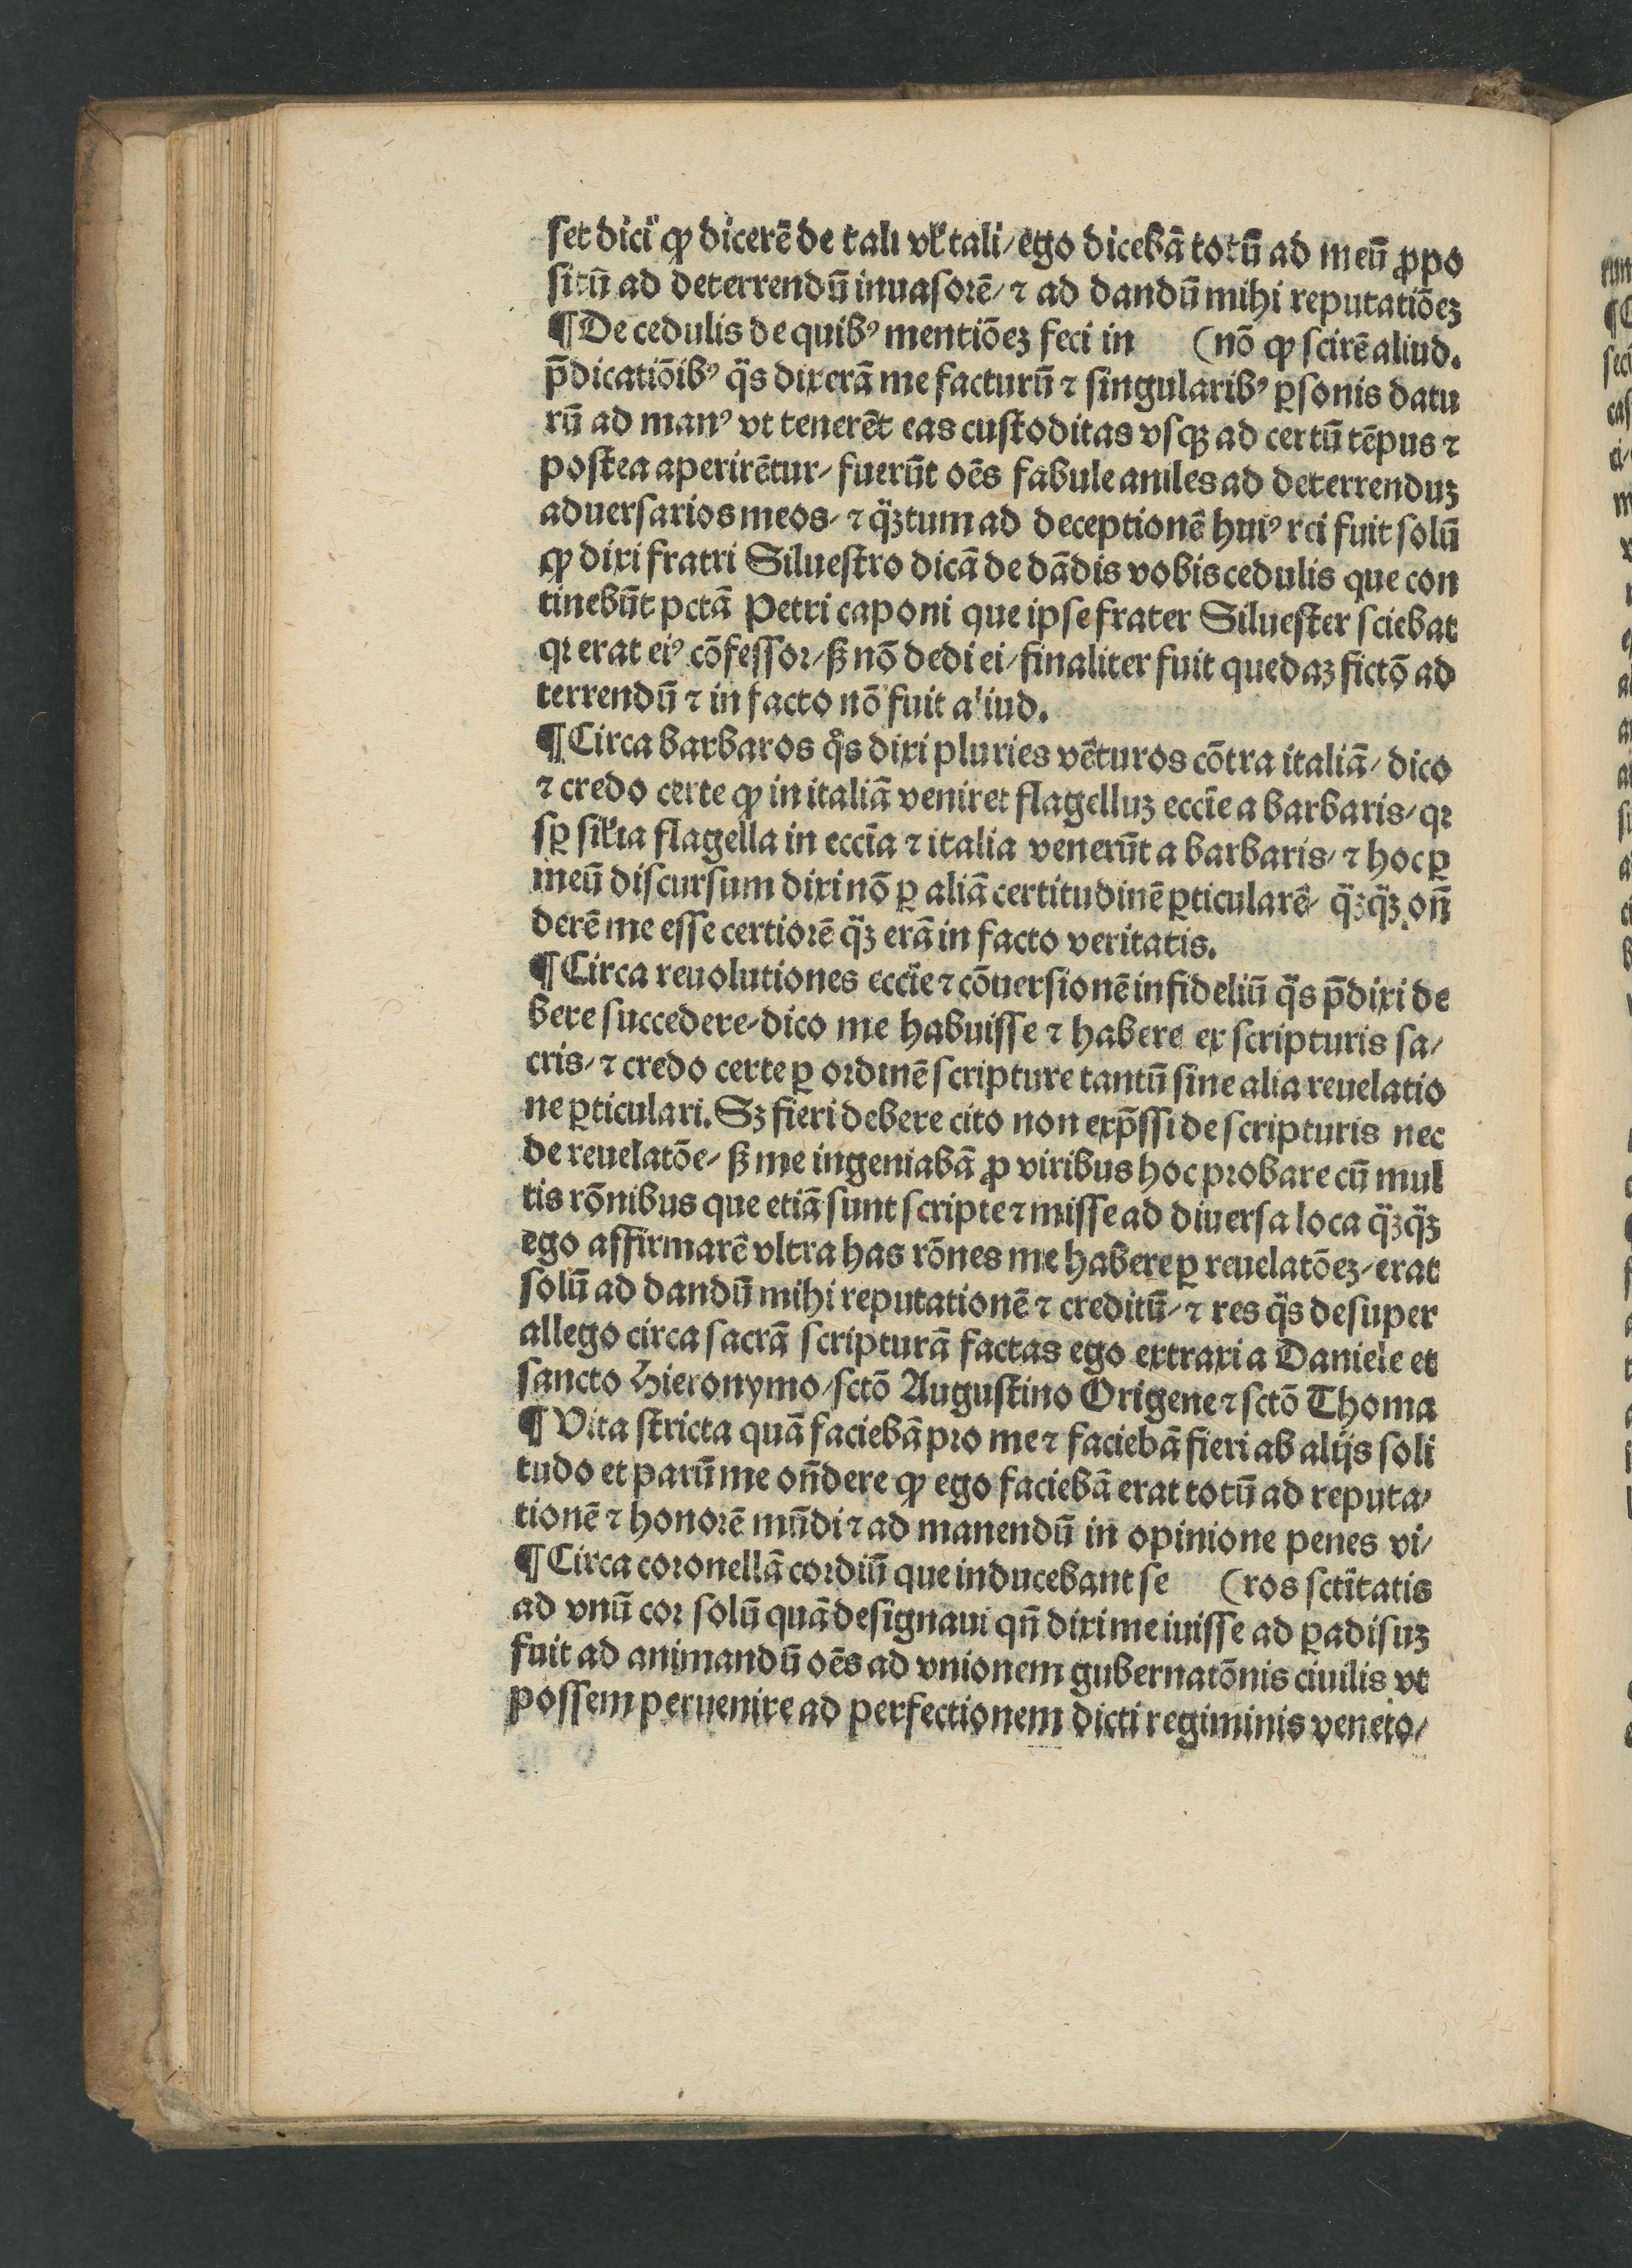 set dici qꝙ dicerē de tali vl' tali / ego dicebā totū ad meū ꝓpo
sitū ad deterrendū inuasorē / ⁊ ad dandū mihi reputatiōeꝫ
¶ De cedulis de quibꝰ mentiōeꝫ feci in (nō ꝙ scirē aliud.
p̄dicatiōibꝰ q̈s dixerā me facturū ⁊ singularibꝰ ꝑsonis datu
rū ad manꝰ vt tenerēt eas custoditas vsqꝫ ad certū tēpus ⁊
postea aperirētur / fuerūt oēs fabule aniles ad deterrenduꝫ
aduersarios meos / ⁊ q̈ꝫtum ad deceptionē huiꝰ rei fuit solū
ꝙ dixi fratri Siluestro dicā de dādis vobis cedulis que con
tinebūt pctā Petri caponi que ipse frater Siluester sciebat
qꝛ erat eiꝰ cōfessor / ß nō dedi ei / finaliter fuit quedaꝫ fictō ad
terrendū ⁊ in facto nō fuit aliud.
¶ Circa barbaros q̊s dixi pluries vēturos cōtra italiā / dico
⁊ credo certe ꝙ in italiā veniret flagelluꝫ eccīe a barbaris / qꝛ
sꝑ sil'ia flagella in eccīa ⁊ italia venerūt a barbaris / ⁊ hoc ꝑ
meū discursum dixi nō ꝑ aliā certitudinē ꝑticularē / q̈ꝫq̈ꝫ on̄
derē me esse certiorē q̈ꝫ erā in facto veritatis.
¶ Circa reuolutiones eccīe ⁊ cōuersionē infideliū q̈s p̄dixi de
bere succedere / dico me habuisse ⁊ habere ex scripturis sa/
cris / ⁊ credo certe ꝑ ordinē scripture tantū sine alia reuelatio
ne ꝑticulari. Sꝫ fieri debere cito non exp̄ssi de scripturis nec
de reuelatōe / ß me ingeniabā ꝓ viribus hoc probare cū mul
tis rōnibus que etiā sunt scripte ⁊ misse ad diuersa loca q̈ꝫq̈ꝫ
ego affirmarē vltra has rōnes me habere ꝑ reuelatōeꝫ / erat
solū ad dandū mihi reputationē ⁊ creditū / ⁊ res q̈s desuper
allego circa sacrā scripturā factas ego extraxi a Daniele et
sancto Hieronymo / sctō Augustino Origene ⁊ sctō Thoma
¶ Vita stricta quā faciebā pro me ⁊ faciebā fieri ab alijs soli
tudo et parū me on̄dere ꝙ ego faciebā erat totū ad reputa/
tionē ⁊ honorē mūdi ⁊ ad manendū in opinione penes vi/
¶ Circa coronellā cordiū que inducebant se (ros sctītatis
ad vnū cor solū quā designaui qn̄ dixi me iuisse ad ꝑadisuꝫ
fuit ad animandū oēs ad vnionem gubernatōnis ciuilis vt
possem peruenire ad perfectionem dicti regiminis veneto/